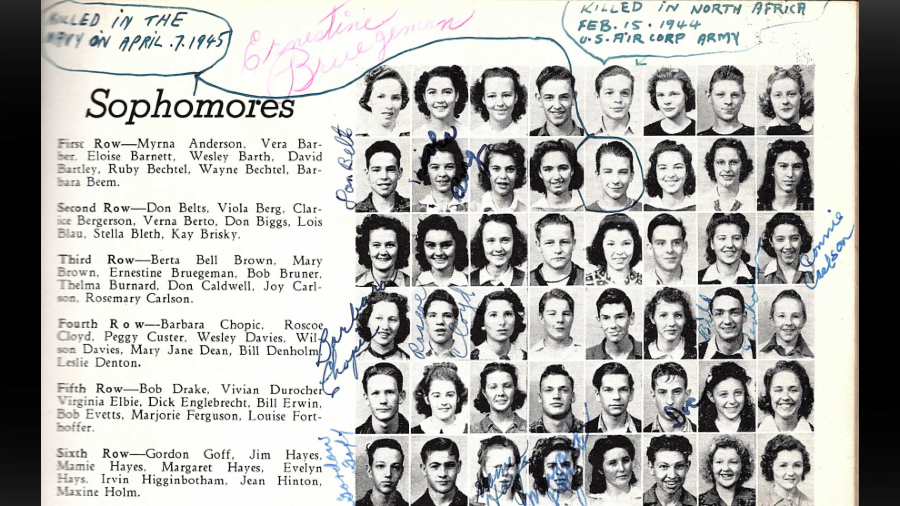 KILLED IN THE
NAVY ON APRIL.7.1945
Ernestine
Bruegeman
KILLED IN NORTH AFRICA
FEB. 15. 1944
U.S. AIR CORP ARMY
Sophomores
First Row—Myrna Anderson, Vera Bar-
ber, Eloise Barnett, Wesley Barth, David
Bartley, Ruby Bechtel, Wayne Bechtel, Bar-
bara Beem.
Second Row—Don Belts, Viola Berg, Clar-
ice Bergerson, Verna Berto, Don Biggs, Lois
Blau, Stella Bleth, Kay Brisky.
Third Row—Berta Bell Brown, Mary
Brown, Ernestine Bruegeman, Bob Bruner,
Thelma Burnard, Don Caldwell, Joy Carl-
son, Rosemary Carlson.
Fourth Row—Barbara Chopic, Roscoe
Cloyd, Peggy Custer, Wesley Davies, Wil-
son Davies, Mary Jane Dean, Bill Denholm,
Leslie Denton.
Fifth Row—Bob Drake, Vivian Durocher
Virginia Elbie, Dick Englebrecht, Bill Erwin,
Bob Evetts, Marjorie Ferguson, Louise Fort-
hoffer.
Sixth Row—Gordon Goff, Jim Hayes,
Mamie Hayes, Margaret Hayes, Evelyn
Hays, Irvin Higginbotham, Jean Hinton,
Maxine Holm.
Don Belt
Viola
Berg
Connie
Barbara
Chopic
Cloyd
Gordon
Goff